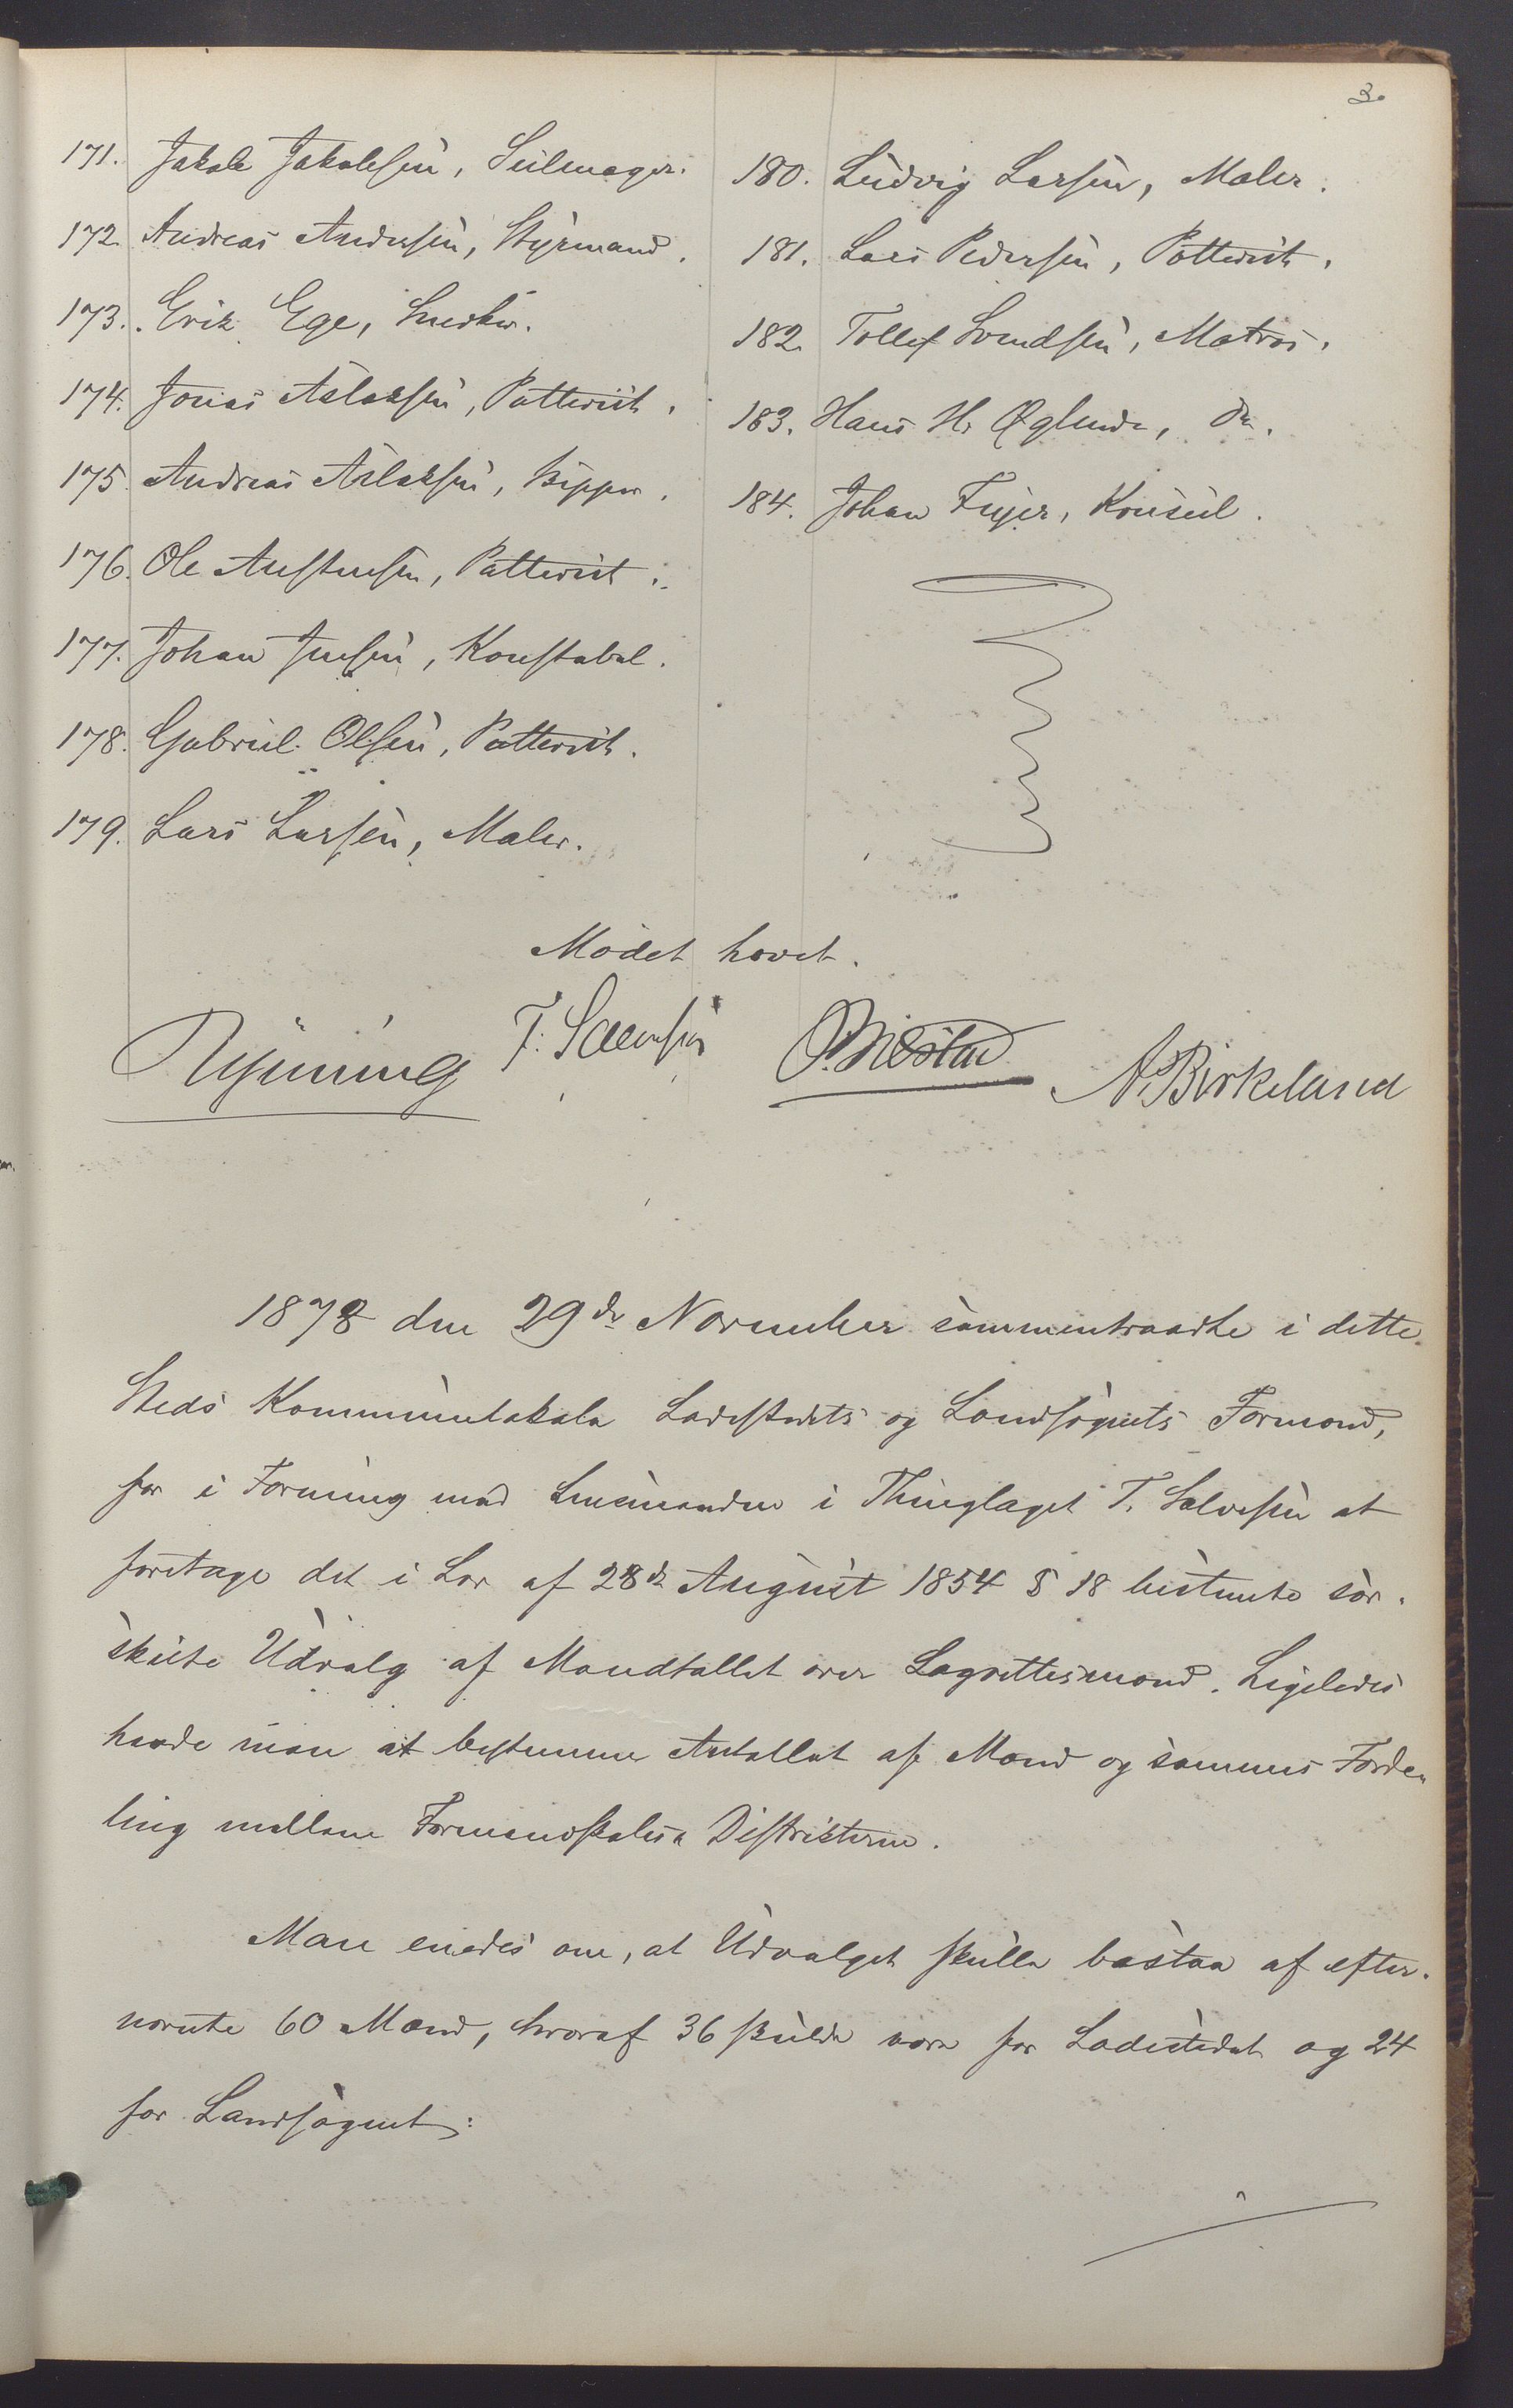 3.
171. Jakob Jakobsen, Seilmager.
172. Andreas Andersen, Styrmand.
173. Erik Ege, Snedker.
174. Jonas Aslaksen, Potterist.
175. Andreas Aslaksen, Skipper.
176. Ole Austensen, Potterist.
177. Johan Jensen, Konstabel.
178. Gabriel Olsen, Potterist.
179. Lars Larsen, Maler.
180. Ludvig Larsen, Maler.
181. Lars Pedersen, Potterist.
182. Tollef Svendsen, Matros.
183. Hans H. Øglend, do.
184. Johan Feyer, Konsul.
Mødet hævet.
T. Salvesen A. Birkeland
1878 den 29de November sammentraadte i dette
Steds Kommunelokale Ladestedets og Landsognets Formænd,
for i Forening med Lensmanden i Thinglaget T. Salvesen at
foretage det i Lov af 28de August 1854 § 18 bestemte sær-
skilte Udvalg af Mandtallet over Lagrettesmænd. Ligeledes
havde man at bestemme Antallet af Mænd og sammes Forde-
ling mellem Formandskabs Distrikterne.
Man enedes om, at Udvalget skulle bestaa af efter-
nævnte 60 Mænd, hvoraf 36 skulde være for Ladestedet og 24
for Landsognet: